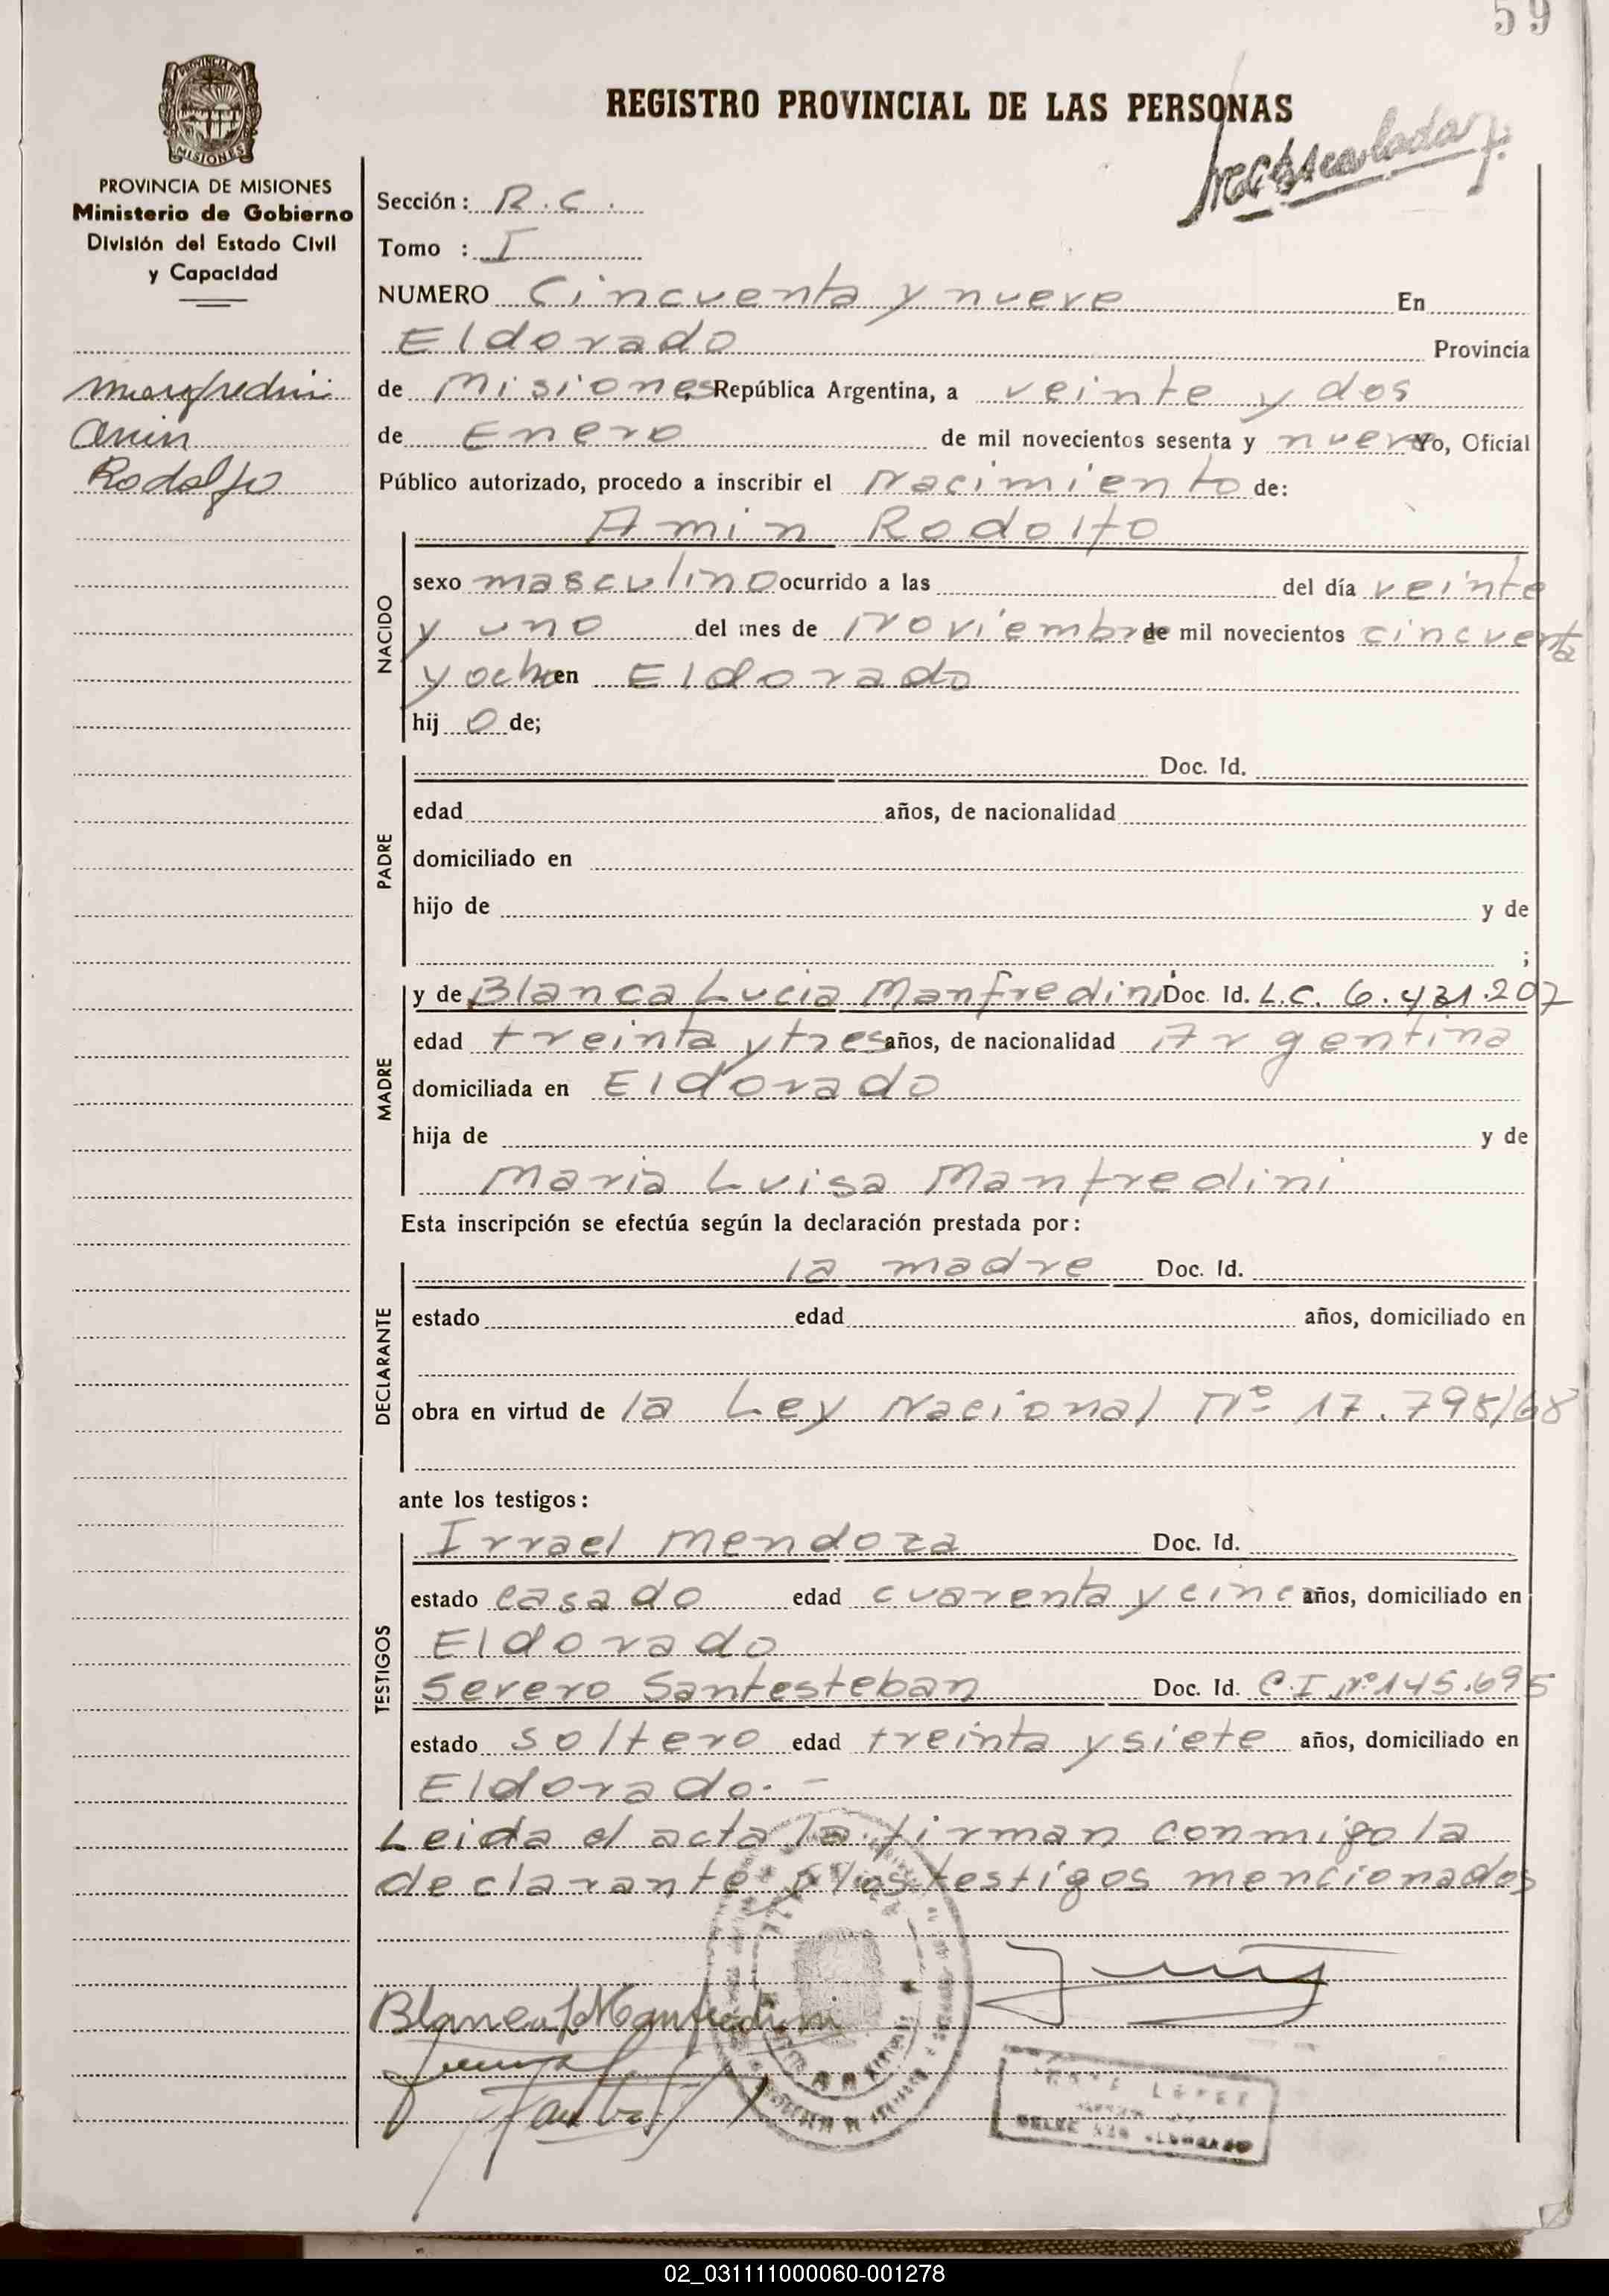 59
REGISTRO PROVINCIAL DE LAS PERSONAS
MISIONES
PROVINCIA DE MISIONES
Ministerio de Gobierno
División del Estado Civil
y Capacidad
Manfredini
Amin
Rodolfo
Sección: R.C.
Tomo : I
NUMERO Cincuenta y nueve En
Eldorado Provincia
de Misiones República Argentina, a veinte y dos
de Enero de mil novecientos sesenta y nueve Yo, Oficial
Público autorizado, procedo a inscribir el Nacimiento de:
Amin Rodolfo
NACIDO
sexo masculino ocurrido a las del día veinte
y uno del mes de Noviembre de mil novecientos cincuenta
y ocho en Eldorado
hij o de;
PADRE
Doc. Id.
edad años, de nacionalidad
domiciliado en
hijo de y de
;
MADRE
y de Blanca Lucia Manfredini Doc. Id. L.C. 6.431.207
edad treinta y tres años, de nacionalidad Argentina
domiciliada en Eldorado
hija de y de
Maria Luisa Manfredini
Esta inscripción se efectúa según la declaración prestada por:
DECLARANTE
la madre Doc. Id.
estado edad años, domiciliado en
obra en virtud de la Ley Nacional Nº 17.795/68
ante los testigos:
TESTIGOS
Irrael Mendoza Doc. Id.
estado casado edad cuarenta y cinc años, domiciliado en
Eldorado
Severo Santesteban Doc. Id. C.I.Nº145.695
estado soltero edad treinta y siete años, domiciliado en
Eldorado.-
Leida el acta la firman conmigo la
declarante y los testigos mencionados
Blanca L Manfredini
LOPEZ
02_031111000060-001278